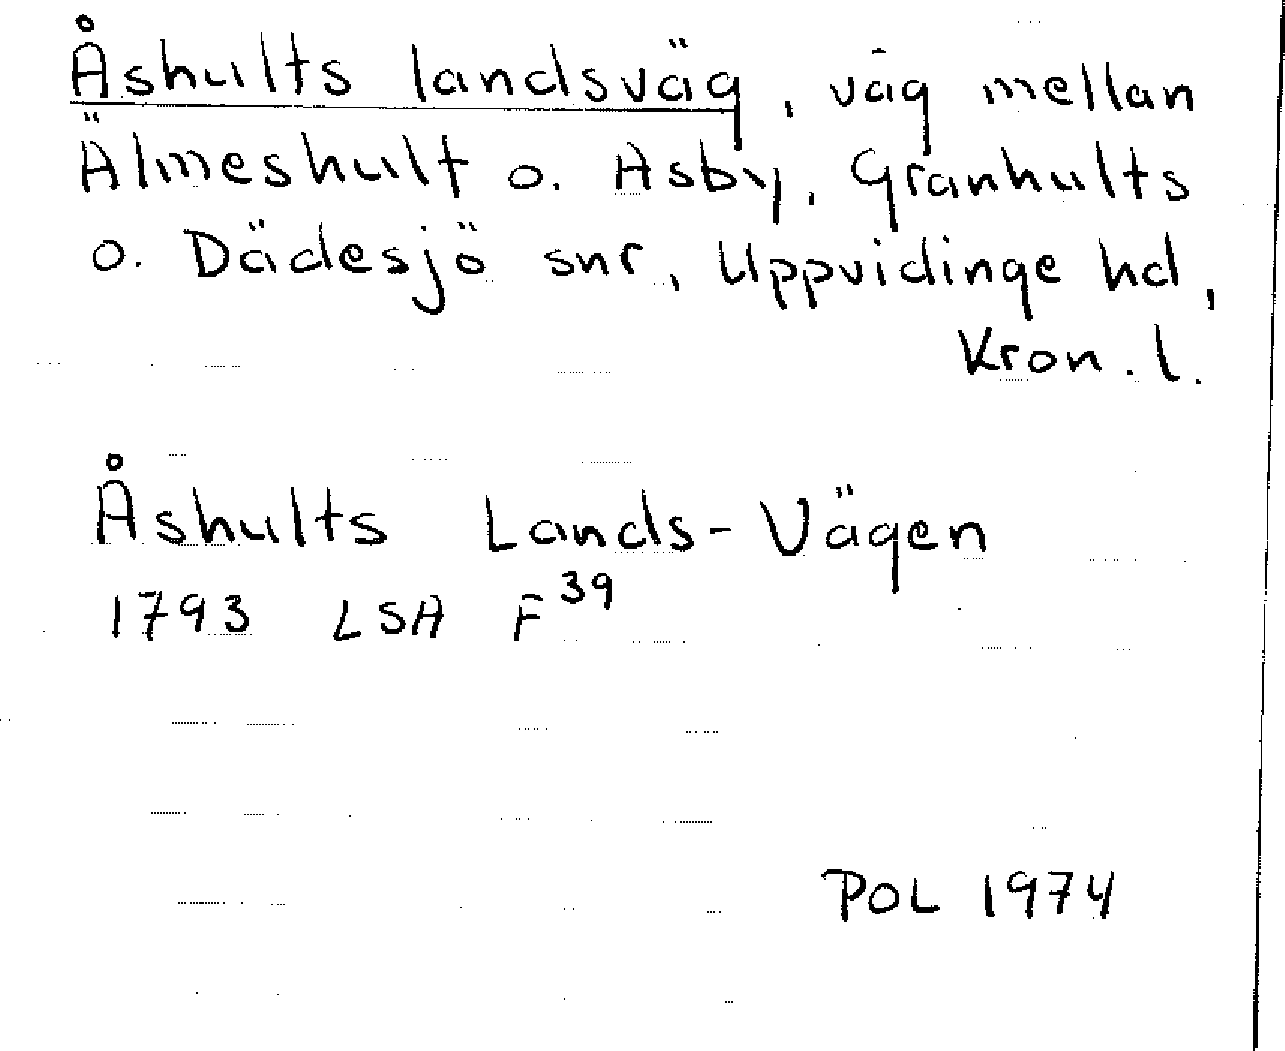 Åshults landsväg, väg mellan
Älmeshult o. Asby, Granhults
o. Dädesjö snr, Uppvidinge hd,
Kron. l.
Åshults Lands-Vägen
1793 LSA F39
POL 1974